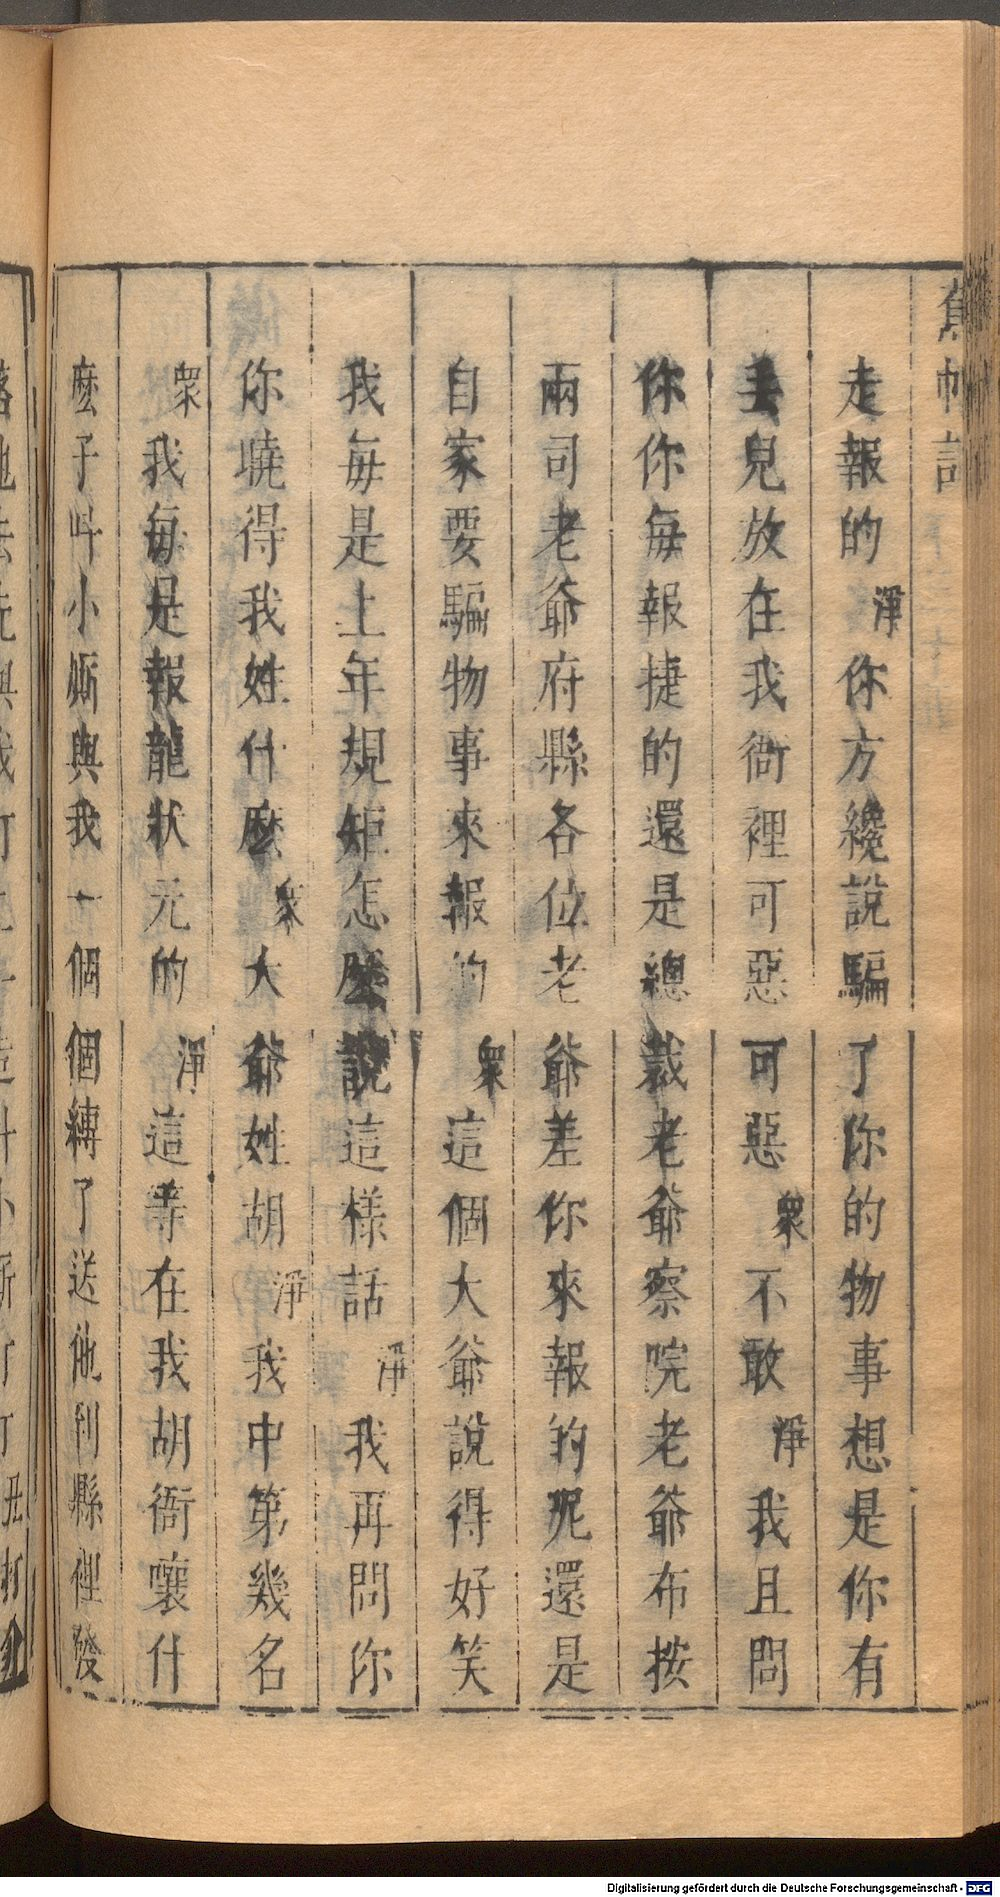 蕉帕記
走報的淨你方纔說騙了你的物事想是你有
妻兒放在我衙裡可惡可惡衆不敢淨我且問
你你每報捷的還是總裁老爺察院老爺布按
兩司老爺府縣各位老爺差你來報的呢還是
自家要騙物事來報的衆這個大爺說得好笑
我每是上年規矩怎麼說這樣話淨我再問你
你曉得我姓什麼衆大爺姓胡淨我中第幾名
衆我每是報龍狀元的淨這等在我胡衙嚷什
麽子呌小厮與我一個個縛了送他到縣裡發
Digitalisierung gefördert durch die Deutsche Forschungsgemeinschaft - DFG